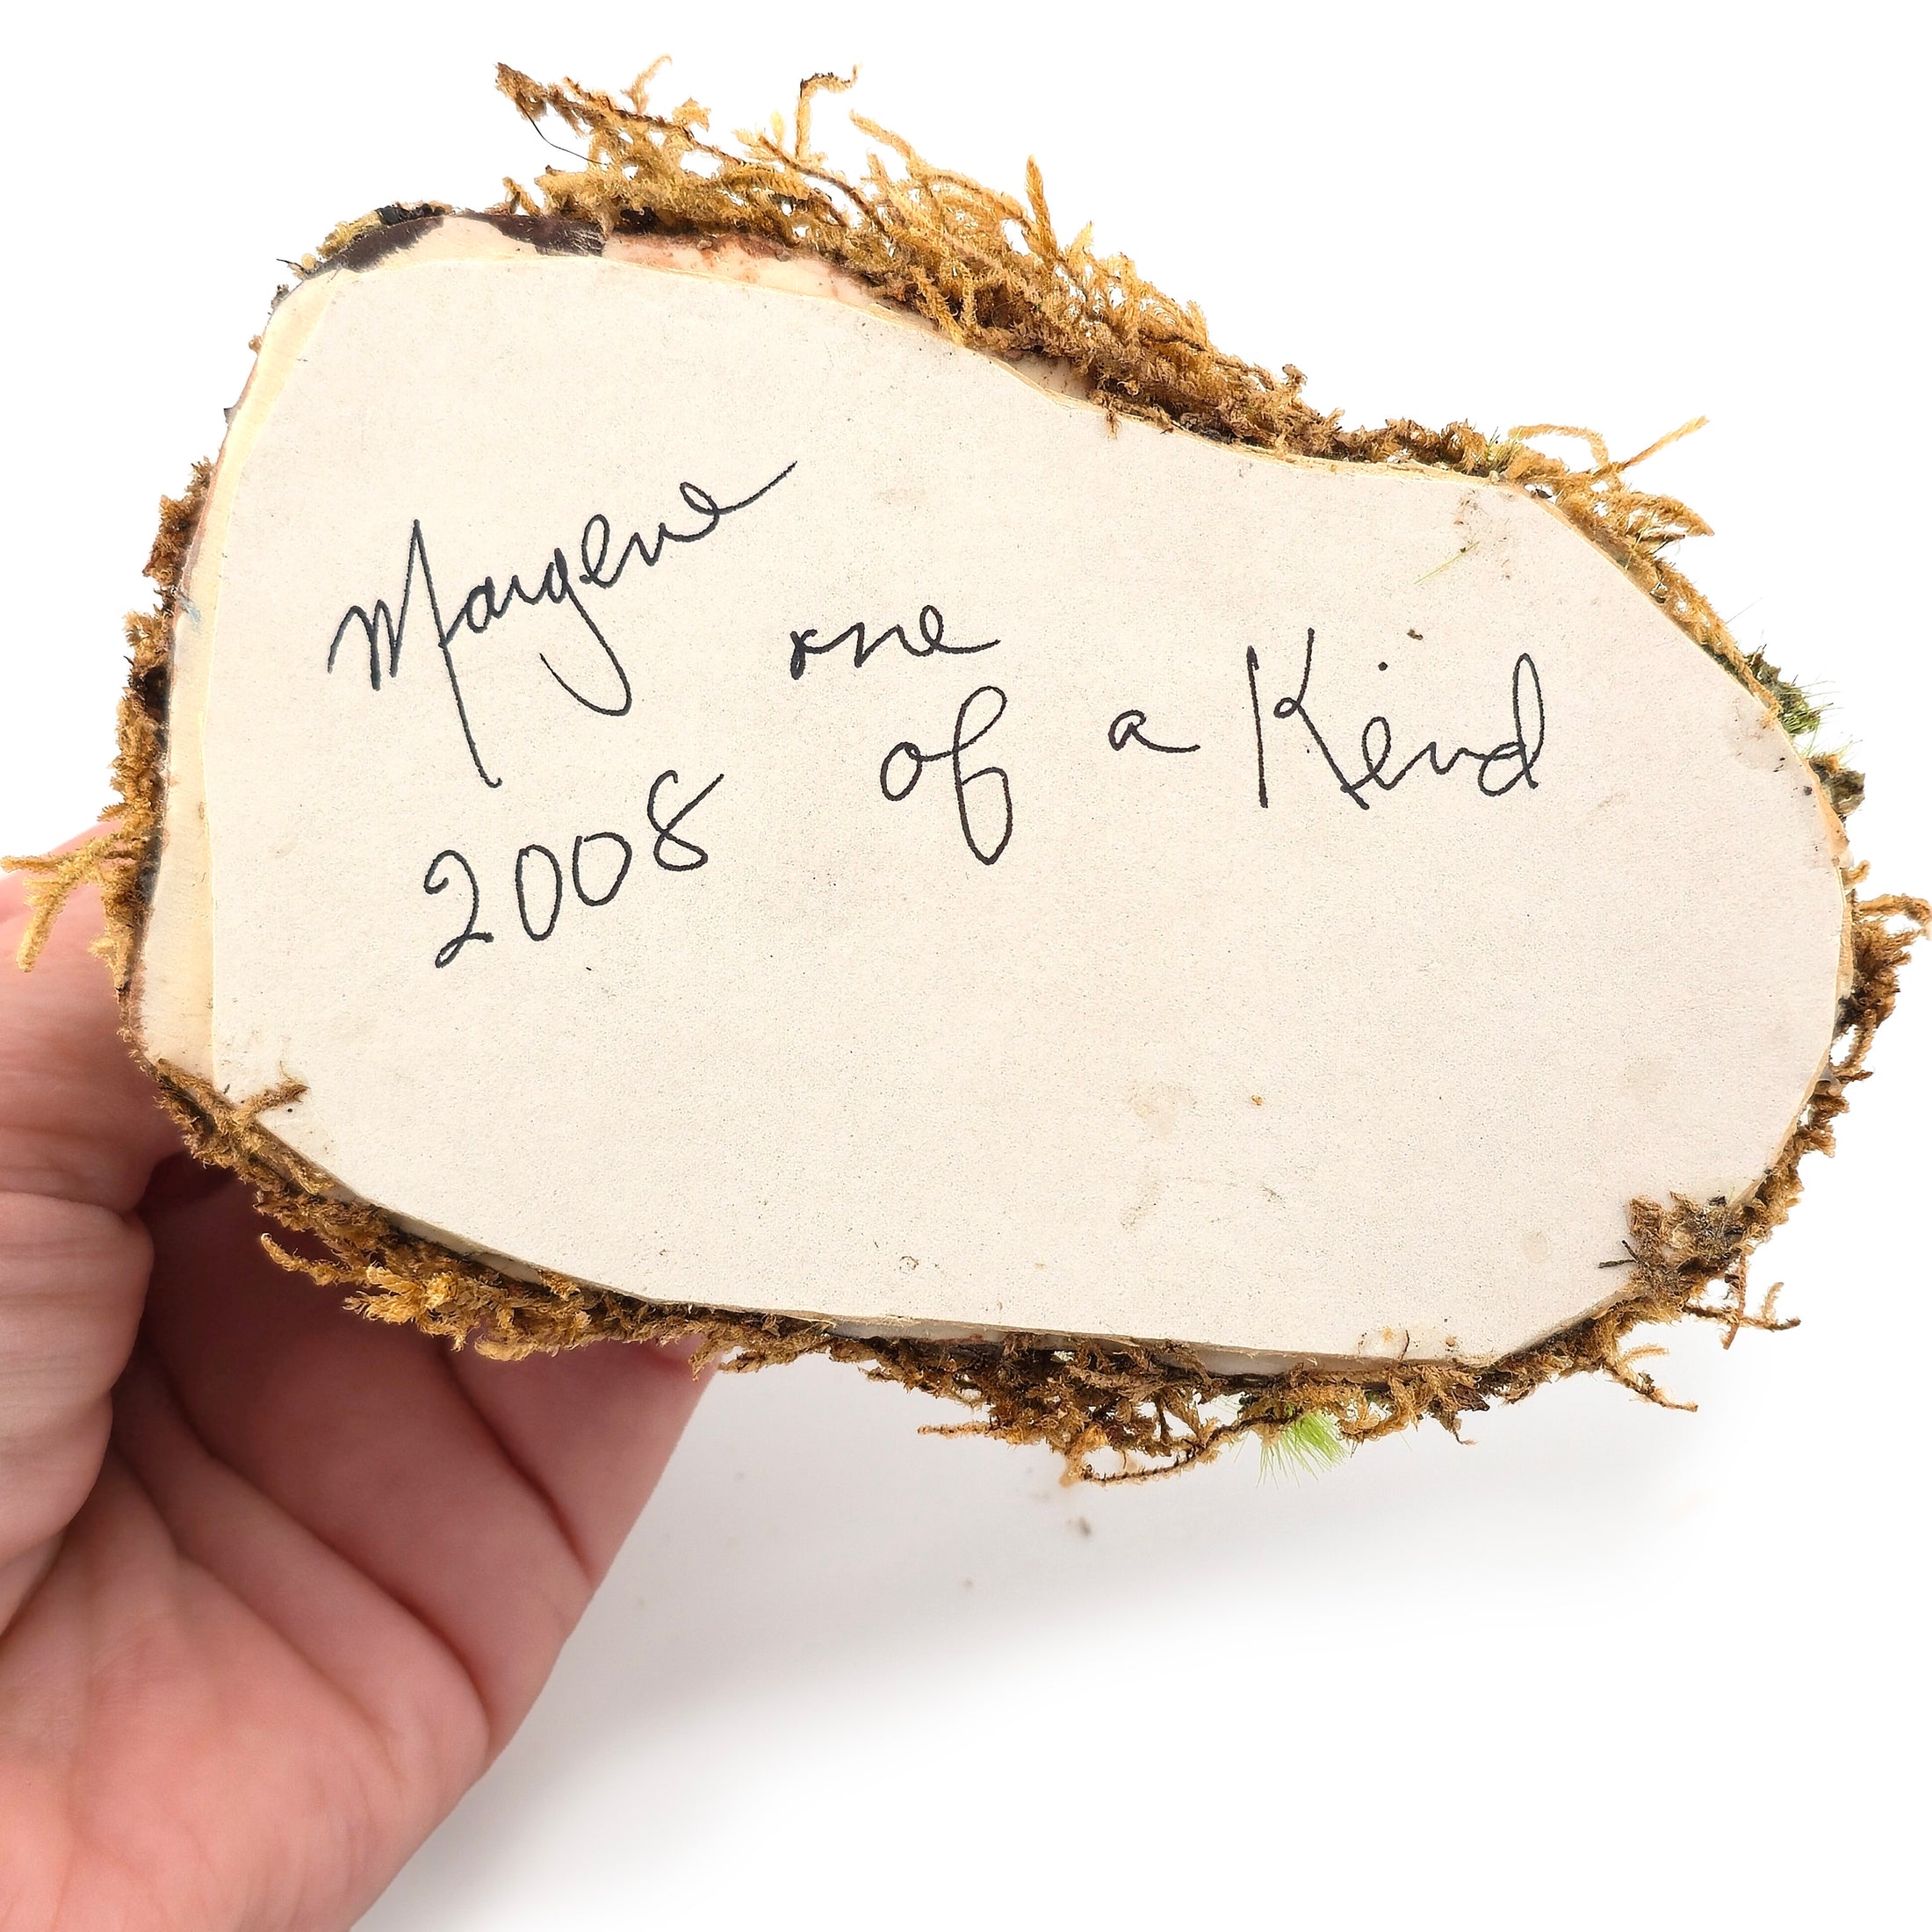 Margene
2008
one
of a Kind